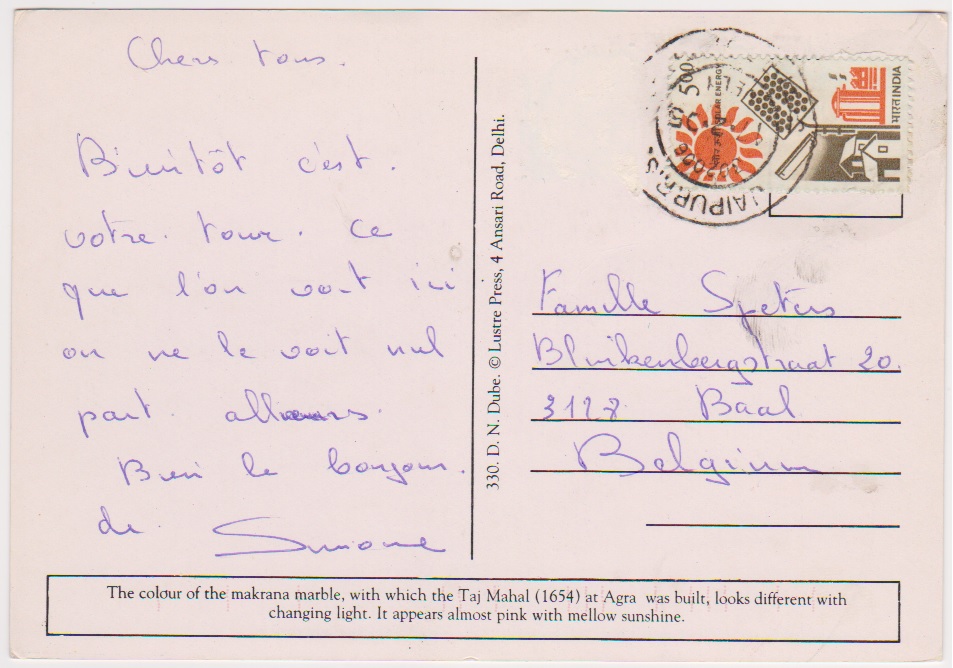 Chers tous.
Bientôt c'est.
votre. tour. Ce
que l'on voit ici
on ne le voit nul
part. ailleurs.
Bien le bonjour.
de. Simone
330. D. N. Dube. © Lustre Press, 4 Ansari Road, Delhi.
5.00
SOLAR ENERGY
भारत INDIA
JAIPUR R.S.
Famille Speters
Blinkenbergstraat 20.
3128 Baal
Belgium
The colour of the makrana marble, with which the Taj Mahal (1654) at Agra was built, looks different with
changing light. It appears almost pink with mellow sunshine.